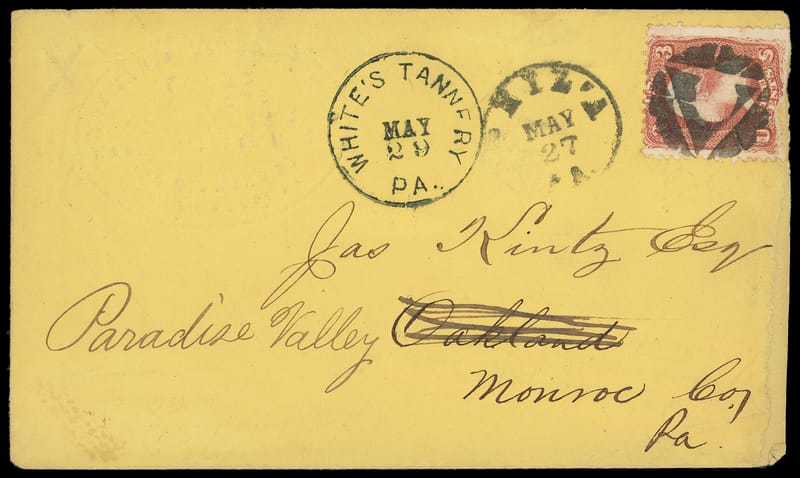 WHITE'S TANNERY
MAY
29
PA.
MAY
27
Jas Kintz Esq
Paradise Valley Oakland
Monroe Co,
Pa.